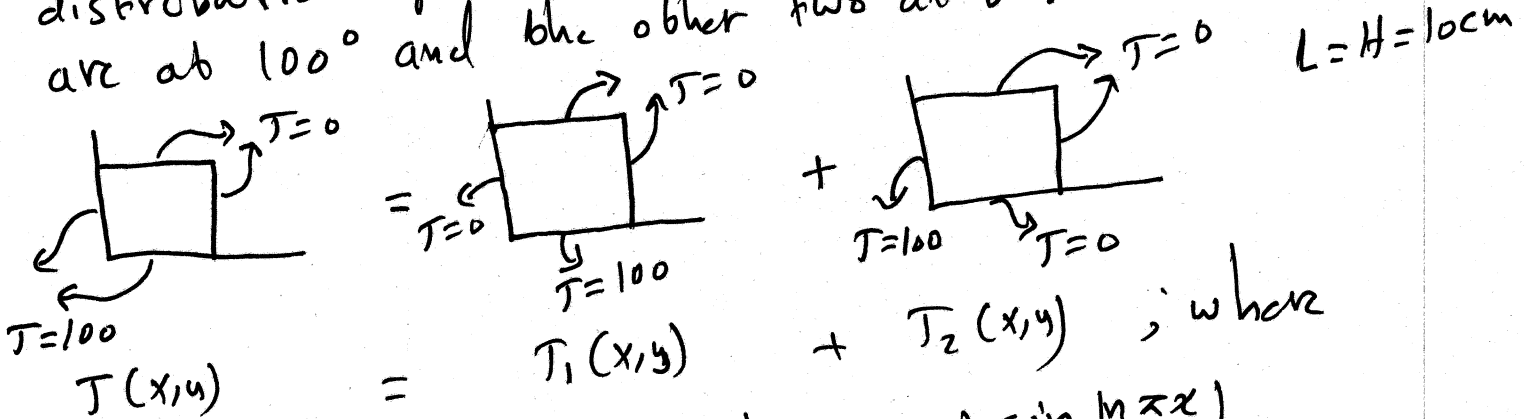 are at 100° and the other two at
L=H=10cm
T=0
T=100
=
T=0
T=0
T=100
+
T=0
T=100
T=0
T(x,y) = T₁(x,y) + T₂(x,y) ; where